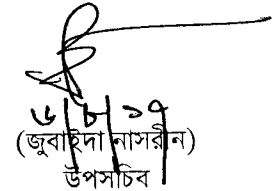 ৬/৮/১৭
(জুবাইদা নাসরীন)
উপসচিব